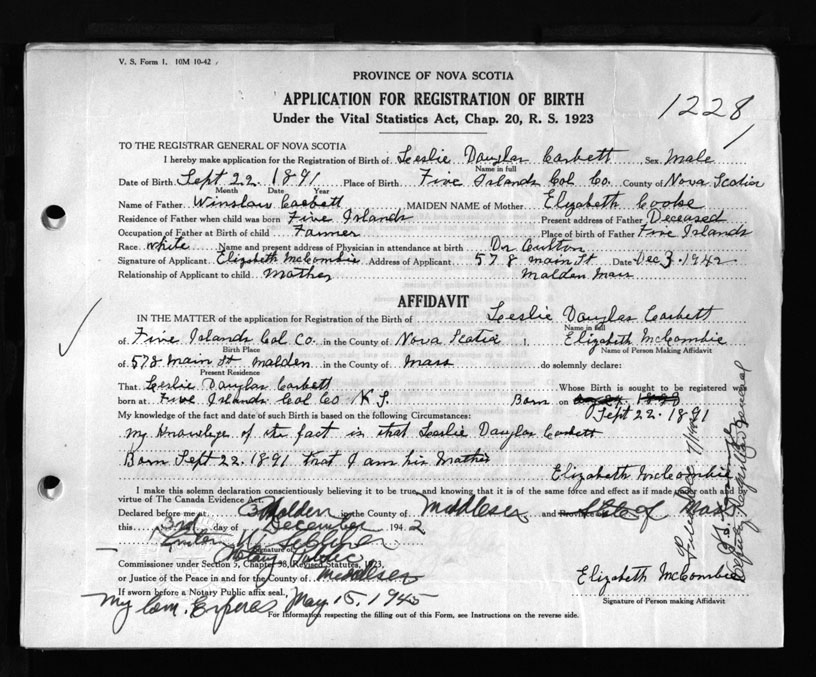 V. S. Form 1. 10M 10-42
PROVINCE OF NOVA SCOTIA
1228
APPLICATION FOR REGISTRATION OF BIRTH
Under the Vital Statistics Act, Chap. 20, R. S. 1923
TO THE REGISTRAR GENERAL OF NOVA SCOTIA
I hereby make application for the Registration of Birth of Leslie Douglas Corbett Sex Male
Name in full
Date of Birth Sept 22. 1891 Place of Birth Five Islands Col Co. County of Nova Scotia
Month Date Year
Name of Father Winslow Corbett MAIDEN NAME of Mother Elizabeth Cooke
Residence of Father when child was born Five Islands Present address of Father Deceased
Occupation of Father at Birth of child Farmer Place of birth of Father Five Islands
Race white Name and present address of Physician in attendance at birth Dr
Signature of Applicant Elizabeth McCombie Address of Applicant 578 Main St Date Dec 3. 1942
Relationship of Applicant to child Mother Malden Mass
AFFIDAVIT
IN THE MATTER of the application for Registration of the Birth of Leslie Douglas Corbett
Name in full
of Five Islands Col. Co. in the County of Nova Scotia I, Elizabeth McCombie
Birth Place Name of Person Making Affidavit
of 578 Main St Malden in the County of Mass do solemnly declare:
Present Residence
That Leslie Douglas Corbett Whose Birth is sought to be registered was
born at Five Islands Col Co N S. Born on
Sept 22. 1891
My knowledge of the fact and date of such Birth is based on the following Circumstances:
My Knowlege of the fact is that Leslie Douglas Corbett
Born Sept 22. 1891 that I am his Mother
Elizabeth McCombie
I make this solemn declaration conscientiously believing it to be true, and knowing that it is of the same force and effect as if made under oath and by
virtue of The Canada Evidence Act.
Declared before me at Malden in the County of Middlesex and Province of State of Mass
this 3rd day of December 1942
Signature of
Notary Public
Commissioner under Section 5, Chapter 38, Revised Statutes, 1923,
or Justice of the Peace in and for the County of Middlesex
Elizabeth McCombie
Signature of Person making Affidavit
If sworn before a Notary Public affix seal.
My Com. Expires May. 15. 1945
For Information respecting the filling out of this Form, see Instructions on the reverse side.
Deputy Registrar General